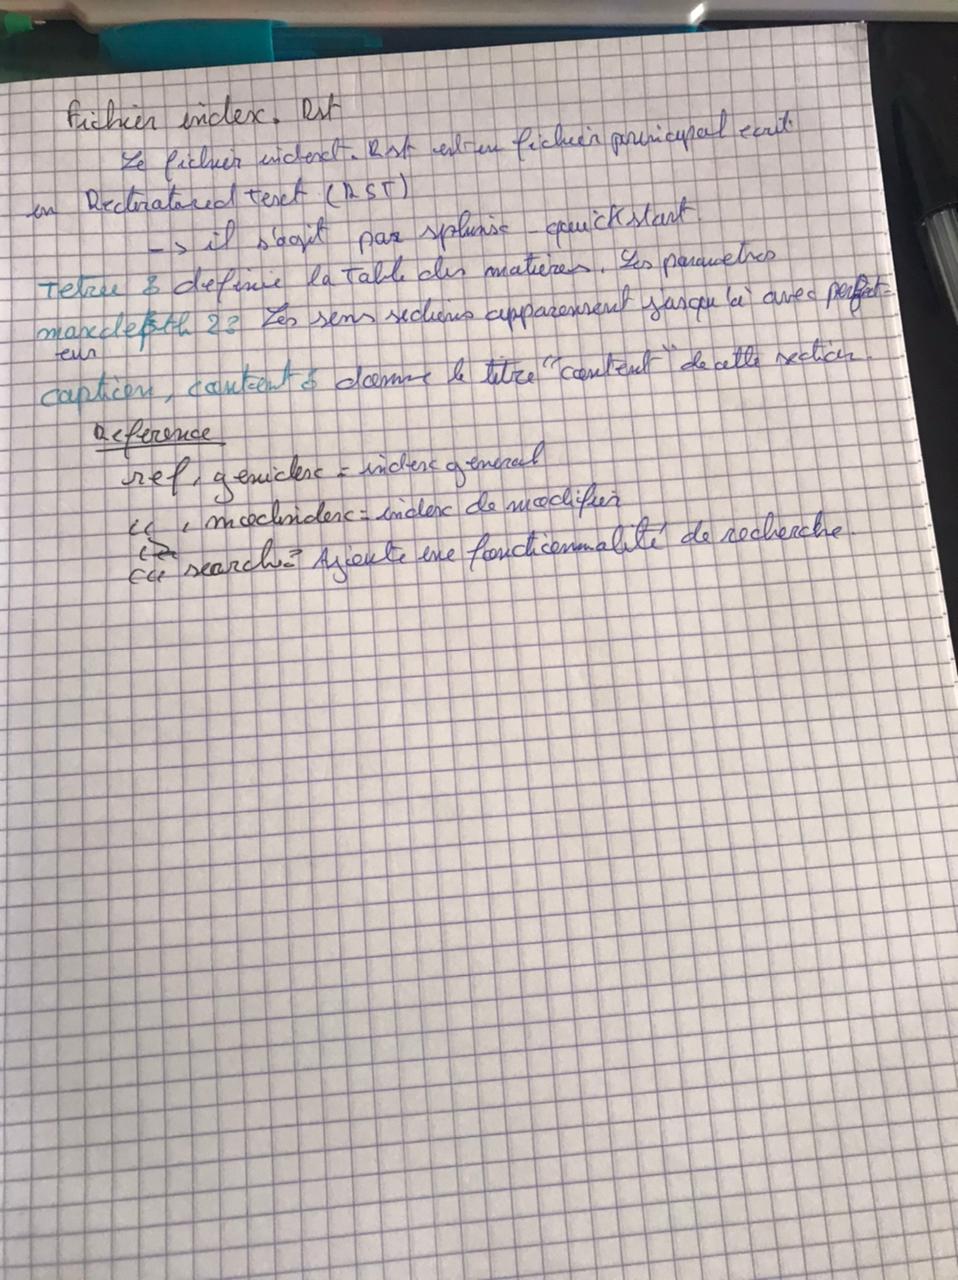 Fichier index. Rst
Le fichier indext. Rst est un fichier principal ecrit
en Rectratured text (RST)
-> il s'agit par sphinse - quickstart
tetree : definie la table des matières. Les parametres
maxdepth 2: Les sens sections apparaessent jusqu'à avec
eur
caption, content : donne le titre "content" de cette section.
Reference
ref, genidex = index general
" , modindex = index de modifier
" search = Ajoute une fonctionnalité de recherche.